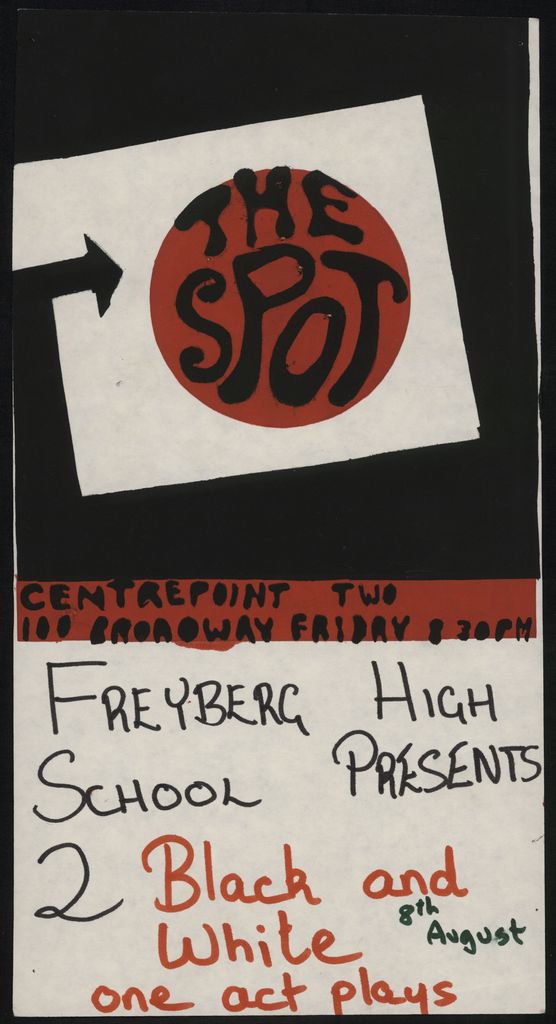 THE
SPOT
CENTREPOINT TWO
100 BROADWAY FRIDAY 8 30PM
FREYBERG HIGH
SCHOOL PRESENTS
2 Black and
White 8th August
one act plays